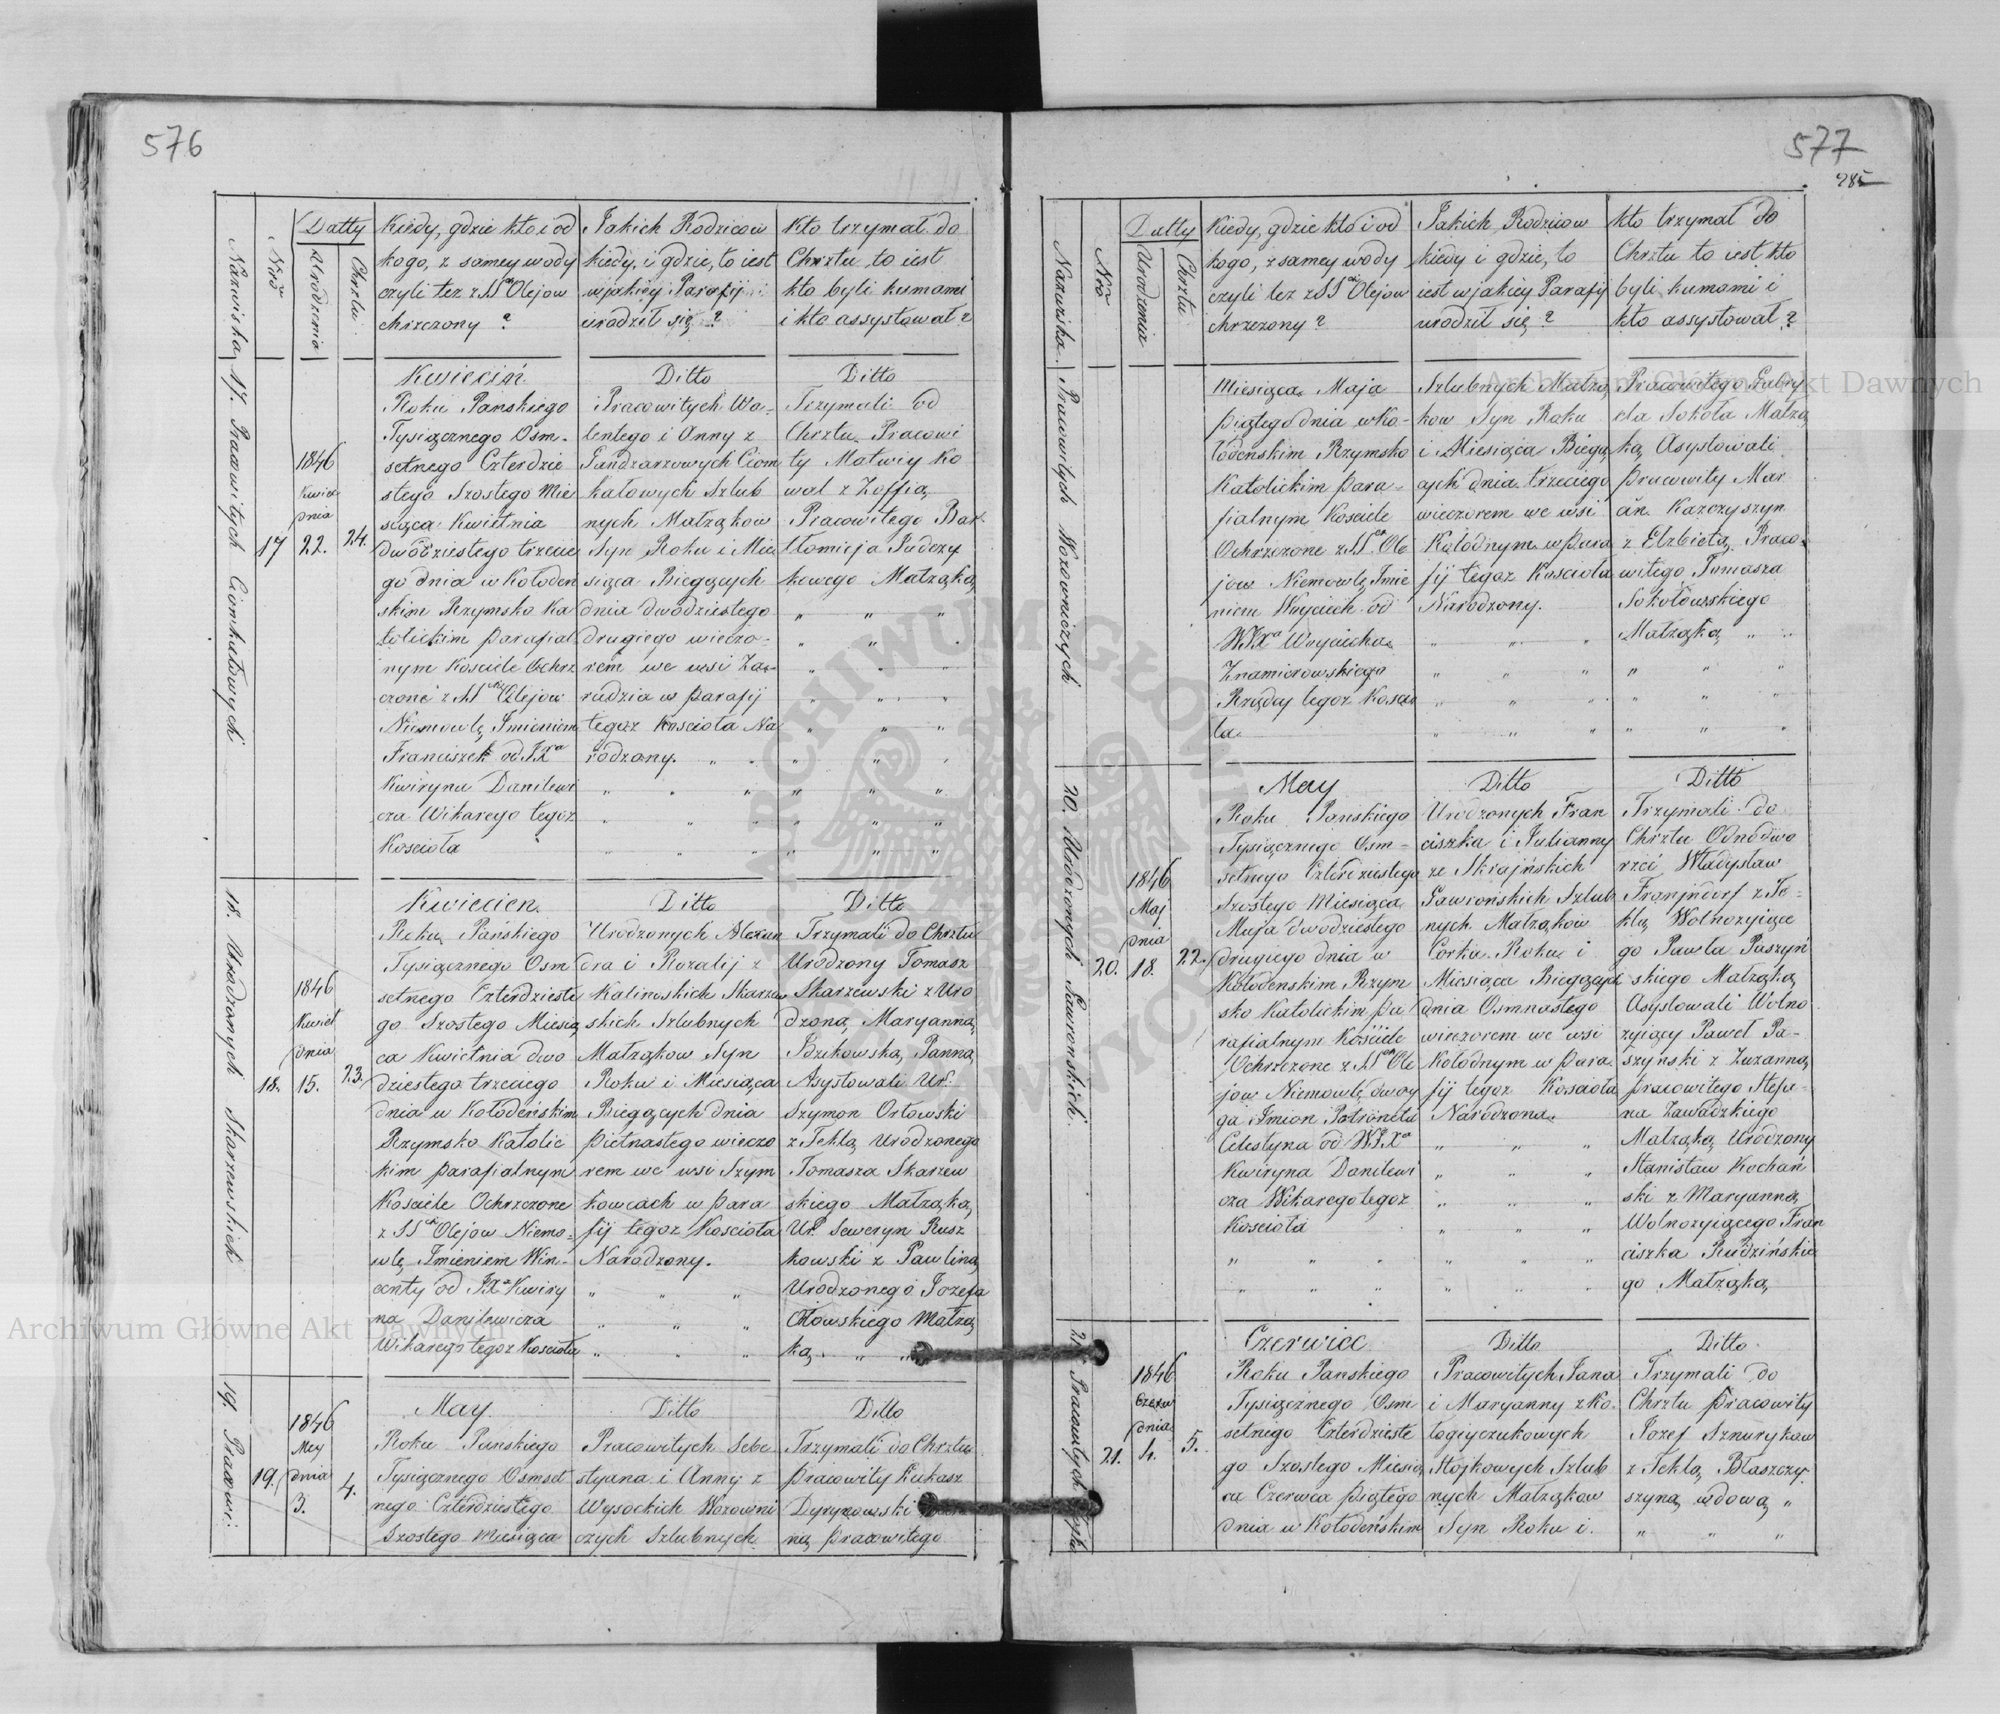 576
Nazwiska
Nro
Datty
Urodzenia
Chrztu
Kiedy, gdzie kto i od
kogo, z samey wody
czyli też z SS. Olejow
chrzczony?
Jakich Rodzicow
kiedy, i gdzie, to iest
w jakiey Parafij
urodził się?
Kto trzymał do
Chrztu to iest
kto byli kumami
i kto assystował?
17. Pracowitych Ciomkałowych
17
1846
dnia
22.
24.
Kwiecień
Roku Panskiego
Tysiącznego Osm-
setnego Czterdzie
stego Szostego Mie
siąca Kwietnia
dwódziestego trzecie
go dnia w Kołodeń
skim Rzymsko Ka
tolickim parafial
nym Kosciele Ochrz
czone z SS Olejow
Niemowlę Imieniem
Franciszek od JXa
Kwiryna Danilewi
cza Wikarego tegoż
Kosciola
Ditto
Pracowitych Wa-
lentego i Anny z
Ciom
kałowych Szlub
nych Małżąkow
Syn Roku i Mie
siąca Biegących
dnia dwodziestego
drugiego wieczo-
rem we wsi Za-
rudzia w parafij
tegoż Kosciola Na
rodzony.
Ditto
Trzymali od
Chrztu Pracowi
ty Matwiy Ko
wal z Zoffią
Pracowitego Bar
tłomieja
Małżąką
18. Urodzonych Skarzewskich
18.
1846
Kwiet
dnia
15.
23.
Kwiecien.
Roku Panskiego
Tysiącznego Osm
setnego Czterdzieste
go Szostego Miesią
ca Kwietnia dwo
dziestego trzeciego
dnia w Kołodeńskim
Rzymsko Katolic
kim parafialnym
Kosciele Ochrzczone
z SS Olejow Niemo-
wlę Imieniem Win-
centy od JXa Kwiry
na Danilewicza
Wikarego tegoż Kosciola
Ditto
Urodzonych Alexan
dra i Rozalij z
Kalinoskich Skarzew
skich Szlubnych
Małżąkow Syn
Roku i Miesiąca
Biegących dnia
pietnastego wieczo
rem we wsi Szym
kowcach w para
fij tegoż Kosciola
Narodzony.
Ditto
Trzymali do Chrztu
Urodzony Tomasz
Skarzewski z Uro
dzoną Maryanną
Bzikowską Panną
Asystowali Ur.
Szymon Orłowski
z Teklą Urodzonego
Tomasza Skarzew
skiego Małżąką
Ur. Seweryn Rusz
kowski z Pawliną
Urodzonego Jozefa
Małżą
ką
19. Pracowi:
19.
1846
May
dnia
3.
4.
May.
Roku Panskiego
Tysiącznego Osmset
nego Czterdziestego
Szostego Miesiąca
Ditto
Pracowitych Seba
styana i Anny z
Wysockich Wozowni
czych Szlubnych
Ditto
Trzymali do Chrztu
pracowity Łukasz
pracowitego
577
285
Nazwiska
Nro
Datty
Urodzenia
Chrztu
Kiedy, gdzie kto i od
kogo, z samey wody
czyli też z SS Olejow
chrzczony?
Jakich Rodzicow
kiedy i gdzie, to
iest w jakiey Parafij
urodził się?
Kto trzymał do
Chrztu to iest kto
byli kumami i
kto assystował?
Pracowitych Wozowniczych
Miesiąca Maja
piątego dnia w Ko-
łodenskim Rzymsko
Katolickim para-
fialnym Kosciele
Ochrzczone z SS Ole
jow Niemowlę Imie
niem Woyciech od
WJXa Woyciecha
Znamierowskiego
Rządcy tegoż Koscio
ła
Szlubnych Małżą
kow Syn Roku
i Miesiąca Biegą
cych dnia trzeciego
wieczorem we wsi
Kołodnym w para
fij tegoż Kosciola
Narodzony.
Pracowitego
Sokoła Małżą
ką Asystowali
pracowity Mar
z Elzbietą Praco-
witego Tomasza
Sokołowskiego
Małżąką
20. Urodzonych Gawronskich.
20.
1846
Maj
dnia
18.
22.
May
Roku Panskiego
Tysiącznego Osm-
setnego Czterdziestego
Szostego Miesiąca
Maja dwodziestego
drugiego dnia w
Kołodenskim Rzym
sko Katolickim pa
rafialnym Kosciele
Ochrzczone z SS Ole
jow Niemowlę dwoy
ga Imion Petronela
Celestyna od WJXa
Kwiryna Danilewi
cza Wikarego tegoż
Kosciola
Ditto
Urodzonych Fran
ciszka i Julianny
ze Skrajńskich
Gawrońskich Szlub
nych Małżąkow
Corka Roku i
Miesiąca Biegących
dnia Osmnastego
wieczorem we wsi
Kołodnym w para
fij tegoż Kosciola
Narodzona.
Ditto
Trzymali do
Chrztu Odnodwo
rzec Władysław
z Te-
klą Wolnożyiące
go Pawła Paszyń
skiego Małżąką
Asystowali Wolno
żyiący Paweł Pa-
szyński z Zuzanną
pracowitego Stefa-
na Zawadzkiego
Małżąką Urodzony
Stanisław Kochań
ski z Maryanną
Wolnożyiącego Fran
ciszka Rudzińskie
go Małżąką
21. Pracowitych
21.
1846
Czerw
dnia
4.
5.
Czerwiec
Roku Panskiego
Tysiącznego Osm
setnego Czterdzieste
go Szostego Miesią
ca Czerwca piątego
dnia w Kołodeńskim
Ditto
Pracowitych Jana
i Maryanny z Ko-
Stojkowych Szlub
nych Małżąkow
Syn Roku i
Ditto
Trzymali do
Chrztu pracowity
Jozef
z Teklą Błaszczy
szyną wdową
Archiwum Główne Akt Dawnych
Archiwum Główne Akt Dawnych